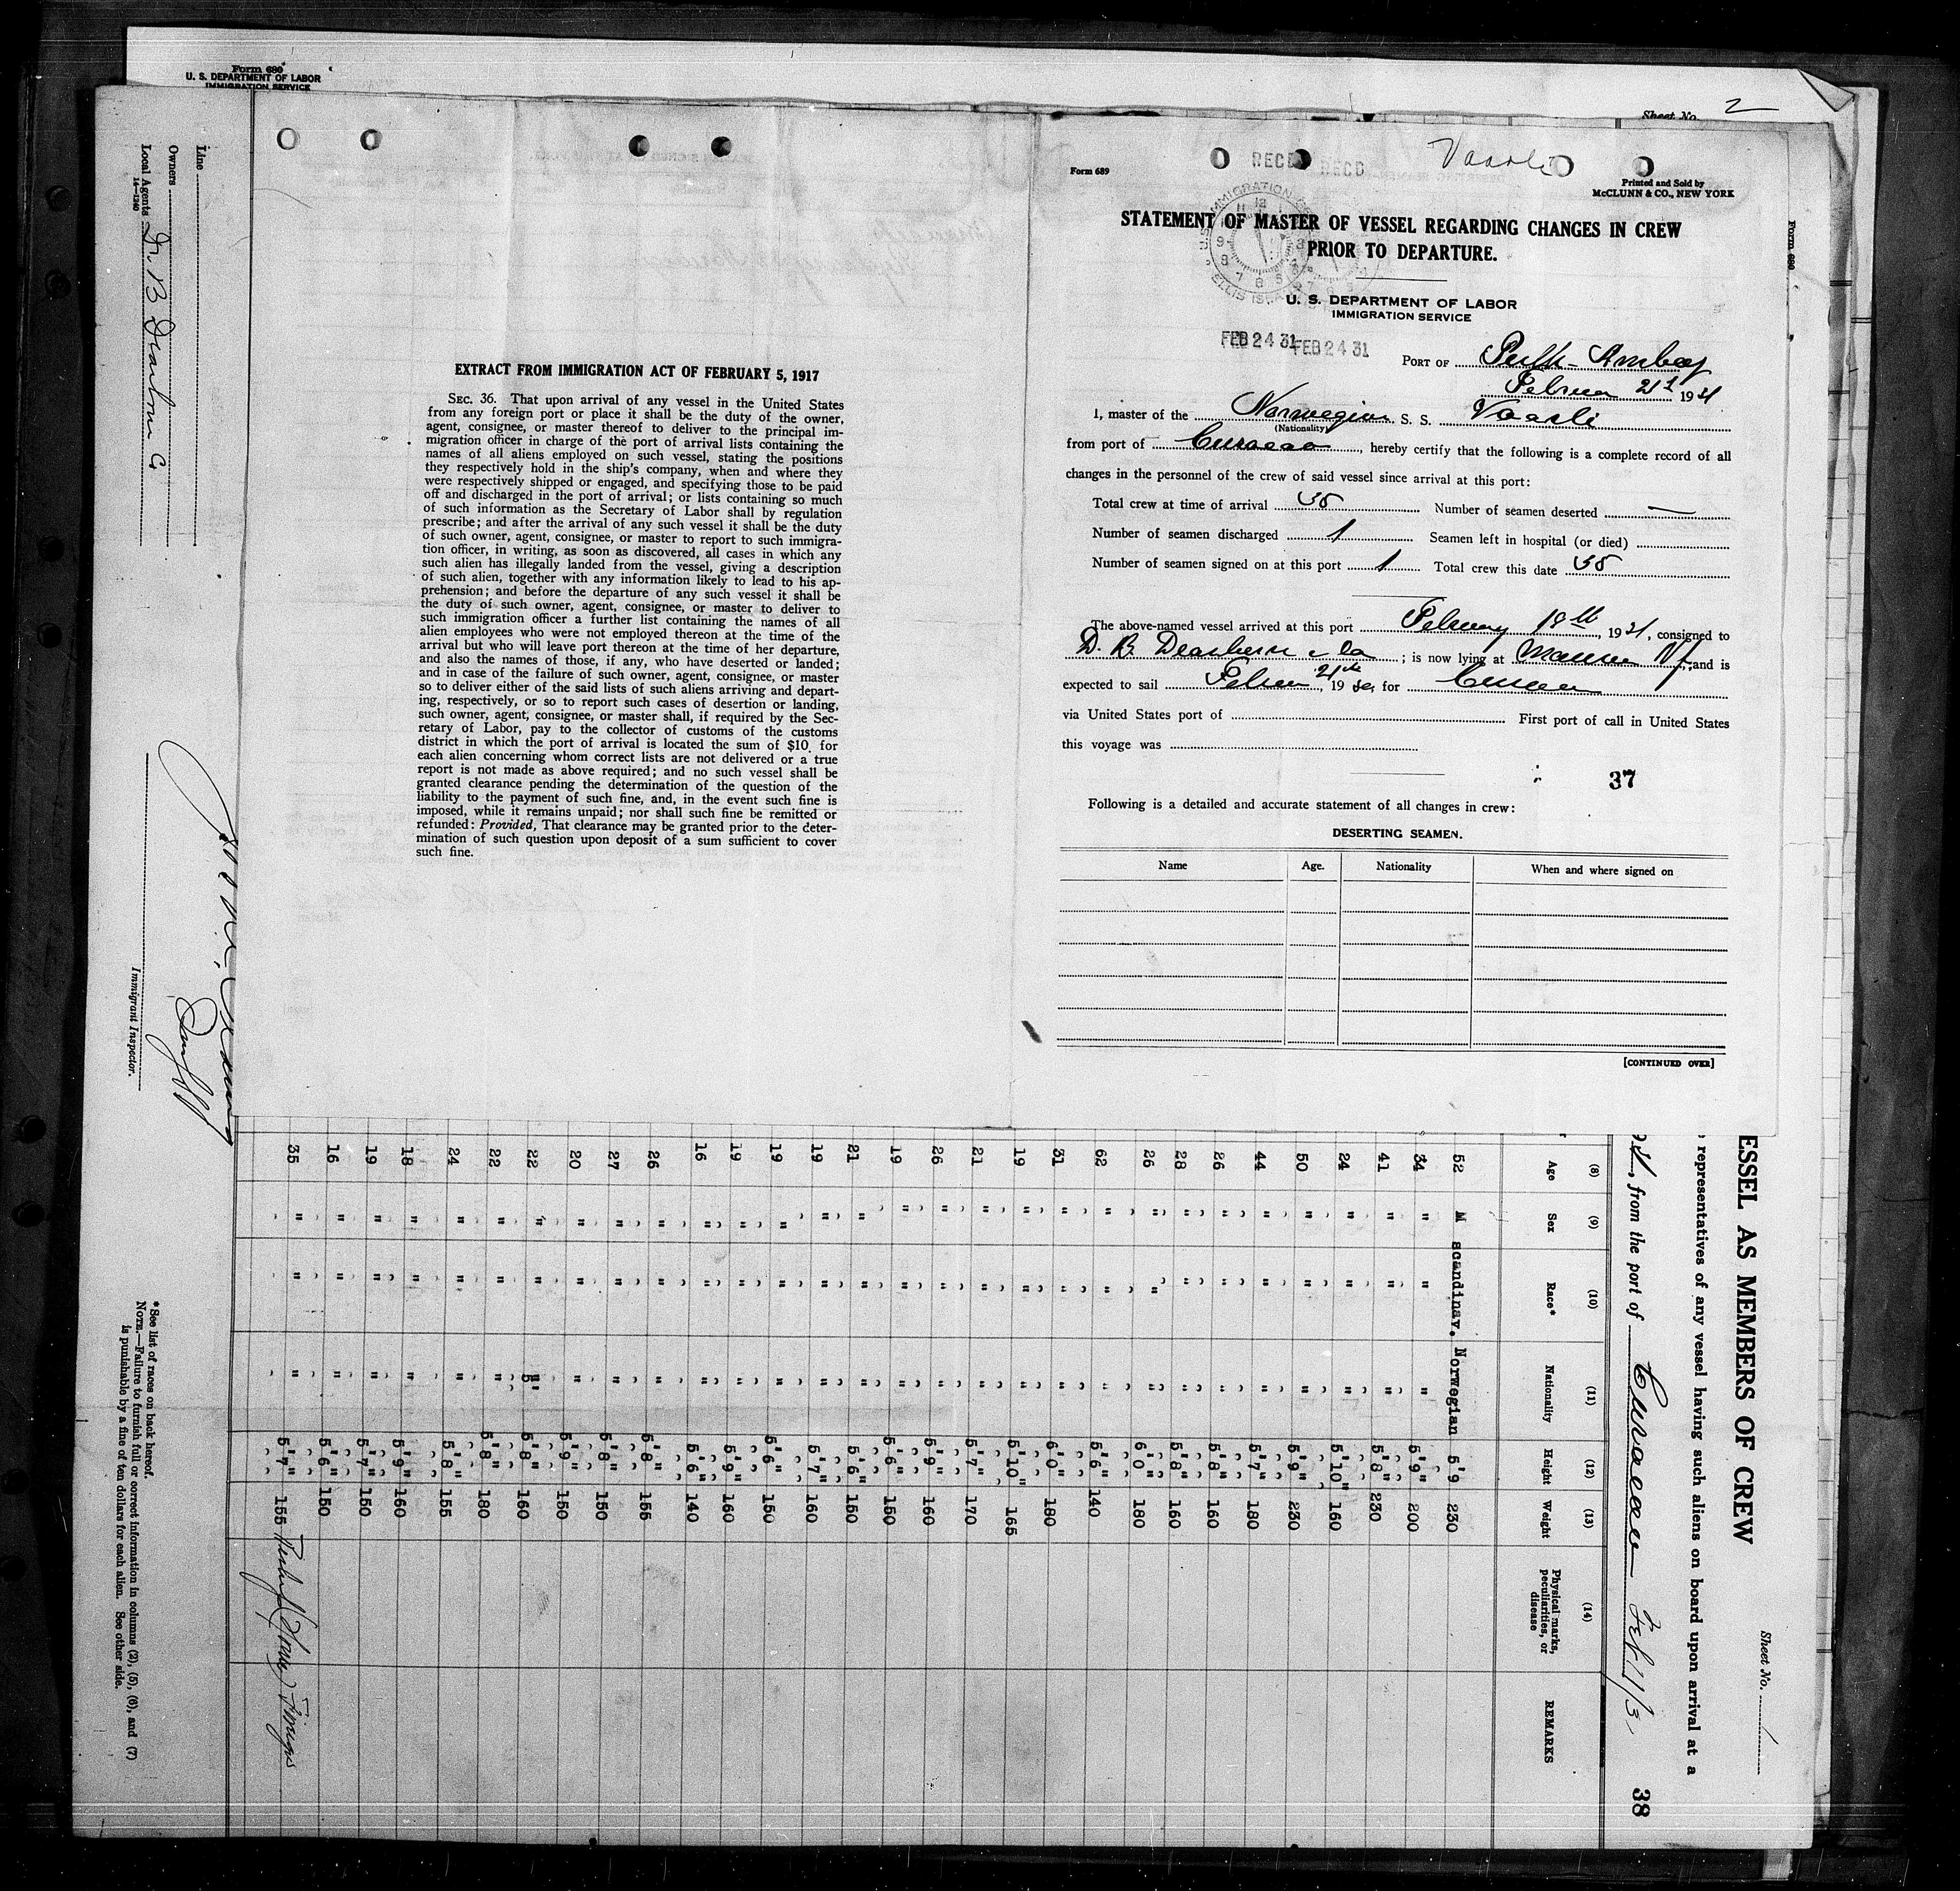 Form 680
U. S. DEPARTMENT OF LABOR
IMMIGRATION SERVICE
Sheet No. 2
Line
Owners
Local Agents D. B Dearborn Co
14—1240
Immigrant Inspector.
*See list of races on back hereof.
NOTE.—Failure to furnish full or correct information in columns (2), (5), (6), and (7)
is punishable by a fine of ten dollars for each alien. See other side.
EXTRACT FROM IMMIGRATION ACT OF FEBRUARY 5, 1917
SEC. 36. That upon arrival of any vessel in the United States
from any foreign port or place it shall be the duty of the owner,
agent, consignee, or master thereof to deliver to the principal im-
migration officer in charge of the port of arrival lists containing the
names of all aliens employed on such vessel, stating the positions
they respectively hold in the ship's company, when and where they
were respectively shipped or engaged, and specifying those to be paid
off and discharged in the port of arrival; or lists containing so much
of such information as the Secretary of Labor shall by regulation
prescribe; and after the arrival of any such vessel it shall be the duty
of such owner, agent, consignee, or master to report to such immigra-
tion officer, in writing, as soon as discovered, all cases in which any
such alien has illegally landed from the vessel, giving a description
of such alien, together with any information likely to lead to his ap-
prehension; and before the departure of any such vessel it shall be
the duty of such owner, agent, consignee, or master to deliver to
such immigration officer a further list containing the names of all
alien employees who were not employed thereon at the time of the
arrival but who will leave port thereon at the time of her departure,
and also the names of those, if any, who have deserted or landed;
and in case of the failure of such owner, agent, consignee, or master
so to deliver either of the said lists of such aliens arriving and depart-
ing, respectively, or so to report such cases of desertion or landing,
such owner, agent, consignee, or master shall, if required by the Sec-
retary of Labor, pay to the collector of customs of the customs
district in which the port of arrival is located the sum of $10 for
each alien concerning whom correct lists are not delivered or a true
report is not made as above required; and no such vessel shall be
granted clearance pending the determination of the question of the
liability to the payment of such fine, and, in the event such fine is
imposed, while it remains unpaid; nor shall such fine be remitted or
refunded: Provided, That clearance may be granted prior to the deter-
mination of such question upon deposit of a sum sufficient to cover
such fine.
Form 689
RECD RECD
Vaarli
Printed and Sold by
McCLUNN & CO., NEW YORK
Form 680
STATEMENT OF MASTER OF VESSEL REGARDING CHANGES IN CREW
PRIOR TO DEPARTURE.
U. S. DEPARTMENT OF LABOR
IMMIGRATION SERVICE
U.S. IMMIGRATION
ELLIS ISLAND
FEB 24 31 FEB 24 31
PORT OF Perth-Amboy
21st 1931
I, master of the Norwegian S. S. Vaarli
(Nationality)
from port of Curacao, hereby certify that the following is a complete record of all
changes in the personnel of the crew of said vessel since arrival at this port:
Total crew at time of arrival 35 Number of seamen deserted —
Number of seamen discharged 1 Seamen left in hospital (or died)
Number of seamen signed on at this port 1 Total crew this date 35
The above-named vessel arrived at this port February 18th, 1931, consigned to
D. B. Dearborn & Co; is now lying at NJ, and is
expected to sail 21st, 19 for Curacao
via United States port of First port of call in United States
this voyage was
37
Following is a detailed and accurate statement of all changes in crew:
DESERTING SEAMEN.
Name Age. Nationality When and where signed on
[CONTINUED OVER]
ESSEL AS MEMBERS OF CREW
Sheet No. 1
representatives of any vessel having such aliens on board upon arrival at a
, from the port of Curacao Feb 11/31
38
(8) (9) (10) (11) (12) (13) (14)
Age Sex Race* Nationality Height Weight Physical marks, peculiarities, or disease REMARKS
52 M scandinav. Norwegian 5'9 230
34 " " " 5'9" 200
41 " " " 5'8" 230
24 " " " 5'10" 160
50 " " " 5'9" 230
44 " " " 5'7" 180
26 " " " 5'8" 160
28 " " " 5'8" 160
26 " " " 6'0" 180
62 " " " 5'6" 140
31 " " " 6'0" 180
19 " " " 5'10" 165
21 " " " 5'7" 170
26 " " " 5'9" 160
19 " " " 5'6" 150
21 " " " 5'6" 150
19 " " " 5'7" 160
19 " " " 5'6" 150
19 " " " 5'9" 160
16 " " " 5'6" 140
26 " " " 5'8" 155
27 " " " 5'8" 150
20 " " " 5'9" 150
22 " " " 5'8" 160
22 " " " 5'8" 180
24 " " " 5'8" 155
18 " " " 5'9" 160
19 " " " 5'7" 150
16 " " " 5'6" 150
35 " " " 5'7" 155